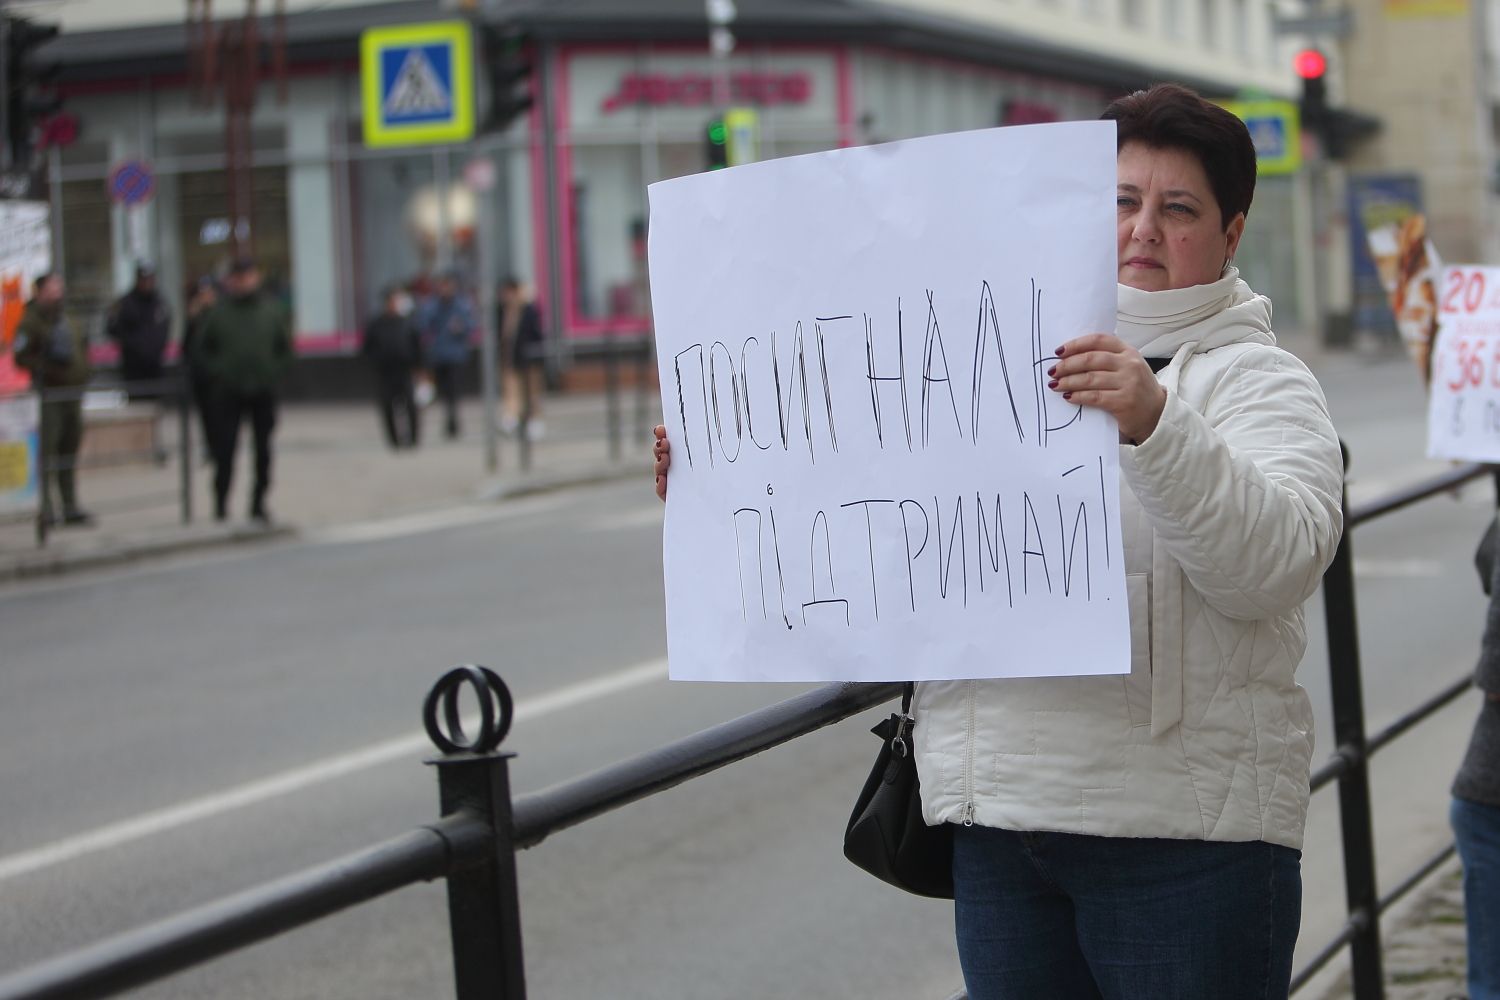 ПОСИГНАЛЬ
ПІДТРИМАЙ!
20
36